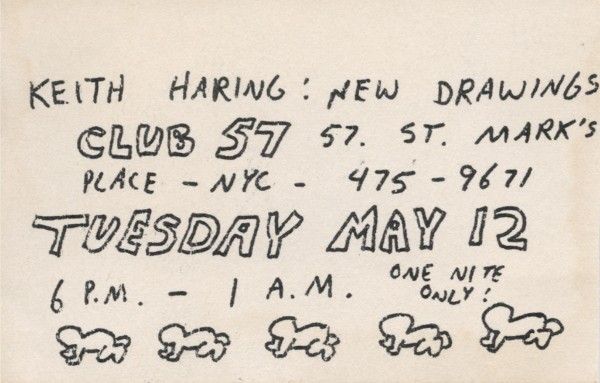 KEITH HARING: NEW DRAWINGS
CLUB 57 57. ST. MARK'S
PLACE - NYC - 475-9671
TUESDAY MAY 12
6 P.M. - 1 A.M. ONE NITE
ONLY!